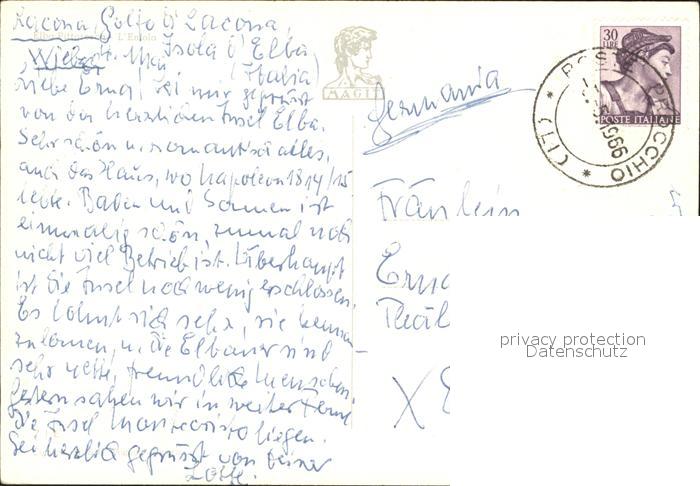 Lacona, Golfo d' Lacona,
Isola d' Elba
Mai (Italia)
Liebe Erna! Sei mir gegrüsst
von der herrlichen Insel Elba.
Sehr schön u. romantisch alles,
auch das Haus, wo Napoleon 1814/15
lebte. Baden und Sonnen ist
einmalig schön, zumal noch
nicht viel Betrieb ist. Überhaupt
ist die Insel noch wenig erschlossen.
Es lohnt sich sehr, sie kennen-
zulernen, u. die Elbaner sind
sehr nette, freundliche Menschen.
Gestern sahen wir in weiter Ferne
die Insel Montecristo liegen.
Sei herzlich gegrüsst von Deiner
Lotte.
MAGIT
Germania
30
LIRE
POSTE ITALIANE
PROCCHIO
* (LI) *
1966
Fräulein
Erna
privacy protection
Datenschutz
X